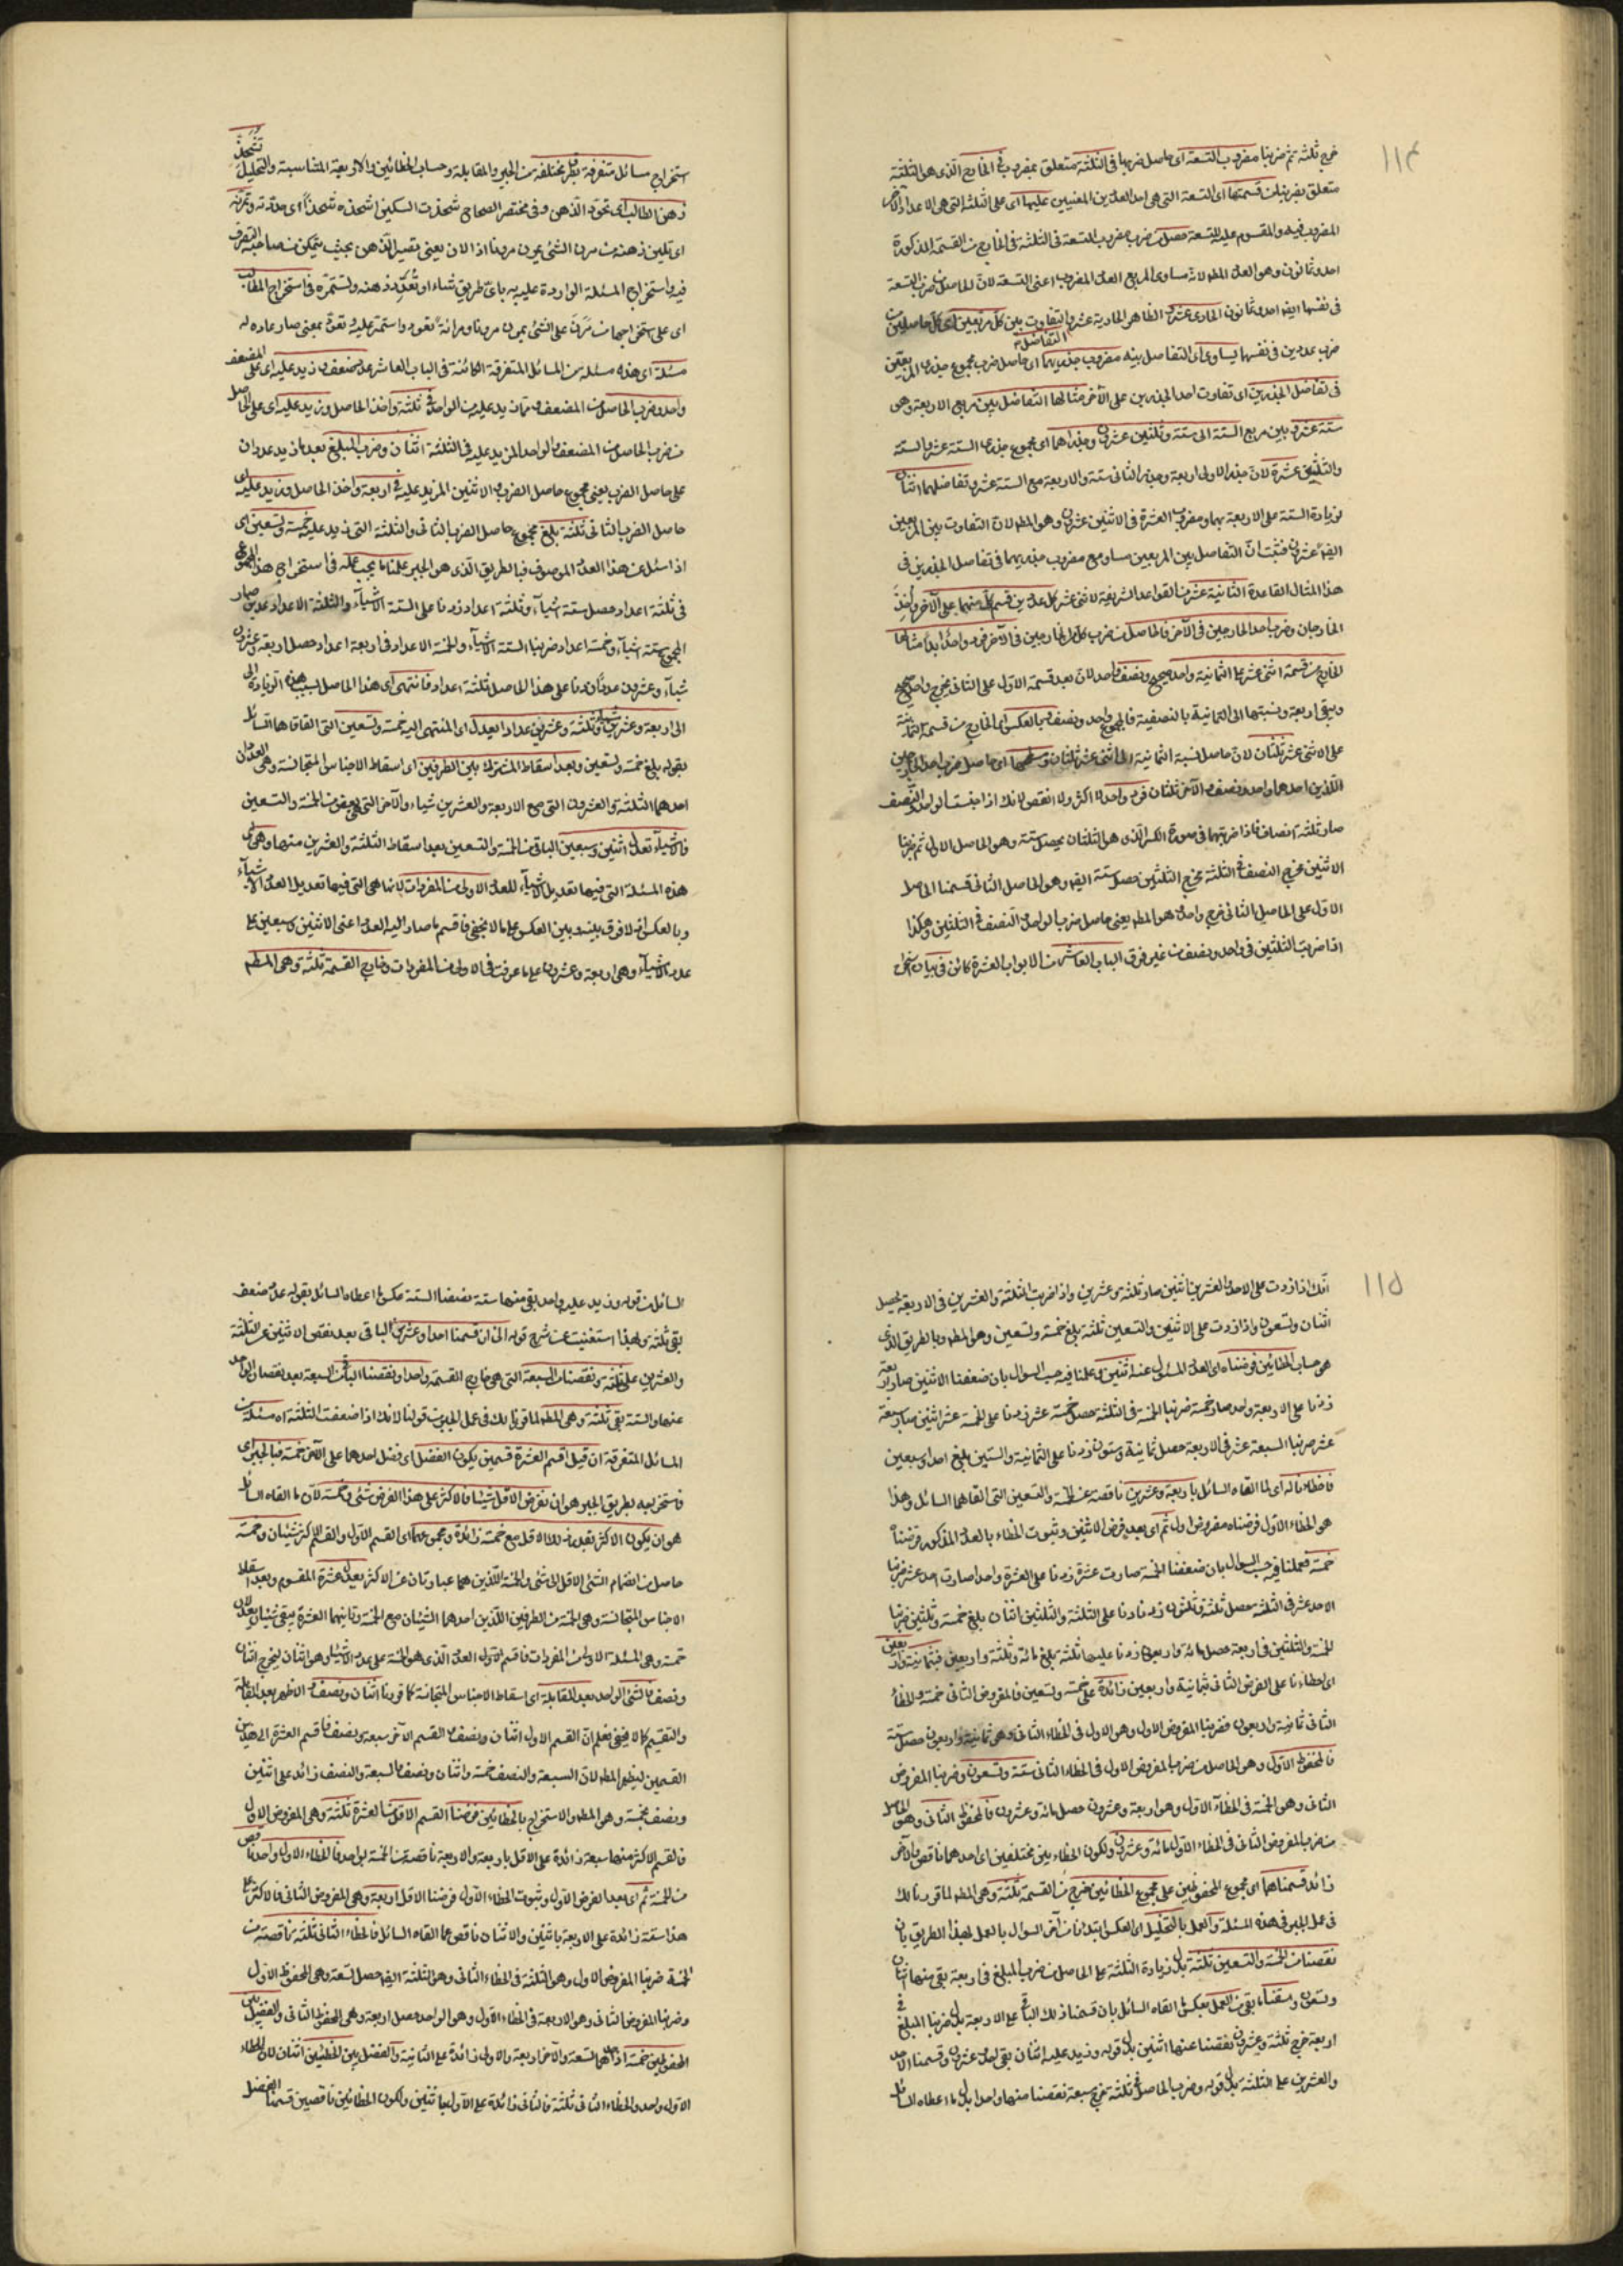 ١١٤
خرج ثلثة ثم ضربنا مضروب التسعة اى حاصل ضربها فى الثلثة متعلق بمضروب فى الخارج الذى هو الثلثة
متعلق بضربنا من قسمتها اى التسعة التى هى احد العددين المفنيين عليها اى على الثلثة التى هى الاعداد الآخر
المضروب فيه والمقسوم عليه للتسعة حصل من ضرب مضروب التسعة فى الثلثة فى الخارج من القسمة المذكورة
احد وثمانون وهو العدد المط لانه مساوى المربع العدد المضروب اعنى التسعة لان الحاصل من ضرب التسعة
فى نفسها ايضا احد وثمانون الحادى عشر الظاهر الحادية عشر والتفاوت بين كل مربعين اى كل حاصلين من
التفاضل
ضرب عددين فى نفسها يساوى اى التفاضل بينه مضروب جذريهما اى حاصل ضرب مجموع جذرى المربعين
فى تفاضل الجذرين اى تفاوت احد الجذرين على الآخر مثالها التفاضل بين مربع الاربعة وهو
ستة عشر وبين مربع الستة اى ستة وثلثين عشرون وجذراهما اى مجموع جذرى الستة عشر والستة
والثلثين عشرة لان جذر الاولى اربعة وجذر الثانى ستة والاربعة مع الستة عشر وتفاضلهما اثنان
لزيادة الستة على الاربعة بهما ومضروب العشرة فى الاثنين عشرون وهو المط لان التفاوت بين المربعين
ايضا عشرون فثبت ان التفاضل بين المربعين مساو مع مضروب جذريهما فى تفاضل الجذرين فى
هذا المثال القاعدة الثانية عشر من القواعد الشريفة الاثنى عشر كل عددين قسم كل منهما على الآخر واخذ
الخارجان وضرب احد الخارجين فى الآخر فالحاصل من ضرب كل من الخارجين فى الآخر فهو واحد ابدا مثالها
الخارج من قسمة اثنى عشر على الثمانية واحد صحيح ونصف واحد لان بعد قسمة الاول على الثانى يخرج واحد صحيح
ويبقى اربعة ونسبتها الى الثمانية بالنصفية فالمجموع واحد ونصف وبالعكس اى الخارج من قسمة الثمانية
على الاثنى عشر ثلثان لان حاصل نسبة الثمانية الى اثنى عشر ثلثان ومسطحهما اى حاصل ضرب احد الخارجين
اللذين احدهما واحد ونصف والآخر ثلثان فهو واحد لا اكثر ولا انقص لانك اذا جنست الواحد والنصف
صار ثلثة انصاف فاذا ضربتها فى صورة الكسر الذى هو الثلثان يحصل ستة وهو الحاصل الاول ثم ضربنا
الاثنين مخرج النصف فى الثلثة مخرج الثلثين حصل ستة ايضا وهو الحاصل الثانى قسمنا الحاصل
الاول على الحاصل الثانى خرج واحد وهو المط يعنى حاصل ضرب الواحد والنصف فى الثلثين وهكذا
اذا ضربت الثلثين فى واحد ونصف من غير فرق الباب العاشر من الابواب العشرة كائن فى بيان استخراج
استخراج مسائل متفرقة بطرق مختلفة من الجبر والمقابلة وحساب الخطائين والاربعة المتناسبة والتحليل
تشحذ
ذهن الطالب اى تحود الذهن وفى مختصر الصحاح شحذت السكين اشحذه شحذا اى حددته وتمرنه
اى تلين ذهنه من مرن الشئ يمرن مرونا اذا لان يعنى تصير الذهن بحيث يتمكن من صاحبه التصرف
فيه واستخراج المسئلة الواردة عليه باى طريق شاء او تعود ذهنه وتستمره فى استخراج المطالب
اى على استخراجها من مرن على الشئ يمرن مرونا ومرانة تعود واستمر عليه وتعود بمعنى صار عادة له
مسئلة اى هذه مسئلة من المسائل المتفرقة الكائنة فى الباب العاشر عدد ضعف وزيد عليه اى على المضعف
واحد وضرب الحاصل من المضعف وما زيد عليه من الواحد فى ثلثة واخذ الحاصل وزيد عليه اى على الحاصل
من ضرب الحاصل من المضعف والواحد المزيد عليه فى الثلثة اثنان وضرب المبلغ بعد ما زيد عددان
على حاصل الضرب يعنى مجموع حاصل الضرب والاثنين المزيد عليه فى اربعة واخذ الحاصل وزيد عليه اى
حاصل الضرب الثانى ثلثة بلغ مجموع حاصل الضرب الثانى والثلثة التى زيد عليه خمسة وتسعين اى
اذا سئل عن هذا العدد الموصوف فبا لطريق الذى هو الجبر عملنا ما يجب عمله فى استخراج هذا المجموع
فى ثلثة اعداد حصل ستة اشياء وثلثة اعداد زدنا على الستة الاشياء والثلثة الاعداد عددين صار
المجموع ستة اشياء وخمسة اعداد ضربنا الستة الاشياء والخمسة الاعداد فى اربعة اعداد حصل اربعة وعشرون
شيئا وعشرون عددا زدنا على هذا الحاصل ثلثة اعداد فانتهى اى هذا الحاصل بسبب هذه الزيادة الى
الى اربعة وعشرين شيئا وثلثة وعشرين عددا يعدل اى المنتهى اليه خمسة وتسعين التى القاها السائل
بقوله بلغ خمسة وتسعين وبعد اسقاط المشترك بين الطرفين اى اسقاط الاجناس المتجانسة وهى العددان
احدهما الثلثة والعشرون التى مع الاربعة والعشرين شيئا والآخر التى هى بعض من الخمسة والتسعين
فالاشياء تعدل اثنين وسبعين الباقى من الخمسة والتسعين بعد اسقاط الثلثة والعشرين منها وهى اى
هذه المسئلة التى فيها تعديل الاشياء للعدد الاولى من المفردات لانها هى التى فيها تعديل العدد الاشياء
وبالعكس اذ لا فرق بينه وبين العكس على ما لا يخفى فاقسم ما صار اليه العدد اعنى الاثنين وسبعين على
عدد الاشياء وهى اربعة وعشرون على ما عرفت فى الاولى من المفردات وخارج القسمة ثلثة وهى المط
١١٥
انك اذا زدت على الاحد والعشرين اثنين صار ثلثة وعشرين واذا ضربت الثلثة والعشرين فى الاربعة يحصل
اثنان وتسعون واذا زدت على الاثنين والتسعين ثلثة بلغ خمسة وتسعين وهو المط وبالطريق الذى
هو حساب الخطائين فرضناه اى العدد المسئول عنه اثنين وعملنا فيه حسب السوال بان ضعفنا الاثنين صار اربعة
زدنا على الاربعة واحد صار خمسة ضربنا الخمسة فى الثلثة حصل خمسة عشر زدنا على الخمسة عشر اثنين صار سبعة
عشر ضربنا السبعة عشر فى الاربعة حصل ثمانية وستون زدنا على الثمانية والستين بلغ احدا وسبعين
فاخطاء ناله اى لما القاه السائل باربعة وعشرين ناقصة عن الخمسة والتسعين التى القاها السائل وهذا
هو الخطاء الاول فرضناه مفروض اول ثم اى بعد فرض الاثنين وثبوت الخطاء بالعدد المذكور فرضناه
خمسة فعملنا فيه حسب السوال بان ضعفنا الخمسة صارت عشرة زدنا على العشرة واحدا صارت احد عشر ضربنا
الاحد عشر فى الثلثة حصل ثلثة وثلثون زدنا على الثلثة والثلثين اثنان بلغ خمسة وثلثين ضربنا
الخمسة والثلثين فى اربعة حصل مائة واربعون زدنا عليها ثلثة بلغ مائة وثلثة واربعين فبثمانية واربعين
اى اخطاءنا على الفرض الثانى بثمانية واربعين زائدة على خمسة وتسعين فالمفروض الثانى خمسة والخطاء
الثانى ثمانية واربعون فضربنا المفروض الاول وهو الاول فى الخطاء الثانى وهى ثمانية واربعون حصل ستة
فالمحفوظ الاول وهو الحاصل من ضرب المفروض الاول فى الخطاء الثانى ستة وتسعون وضربنا المفروض
الثانى وهو الخمسة فى الخطاء الاول وهو اربعة وعشرون حصل مائة وعشرون فالمحفوظ الثانى وهو الحاصل
من ضرب المفروض الثانى فى الخطاء الاول مائة وعشرون ولكون الخطاء بين مختلفين اى احدهما ناقص والآخر
زائد قسمناهما اى مجموع المحفوظين على مجموع الخطائين خرج من القسمة ثلثة وهى المط لما قررنا لك
فى عمل الجبر فى هذه المسئلة والعمل بالتحليل اى العكس ابتداءنا من آخر السوال بالعمل بهذا الطريق بان
نقصنا من الخمسة والتسعين ثلثة بدل زيادة الثلثة على الحاصل من ضرب المبلغ فى اربعة بقى منها اثنان
وتسعون وسقنا ما بقى من العمل بعكس ما القاه السائل بان قسمنا ذلك الباقى على الاربعة بدل ضربنا المبلغ فى
اربعة خرج ثلثة وعشرون نقصنا عنها اثنين بدل قوله وزيد عليه اثنان بقى احد وعشرون وقسمنا الاحد
والعشرين على الثلثة بدل قوله وضرب الحاصل فى ثلثة خرج سبعة نقصنا منها واحدا بدل ما اعطاه السائل
السائل من قوله وزيد عليه واحد بقى منها ستة نصفنا الستة عكس ما اعطاه السائل بقوله عدد ضعف
بقى ثلثة ولهذا استغنيت عن شرح قوله الى ان قسمنا احدا وعشرين الباقى بعد نقص الاثنين عن الثلثة
والعشرين على ثلثة ونقصنا من السبعة التى هى خارج القسمة واحدا ونصفنا الباقى من السبعة بعد نقصان الواحد
عنها والستة بقى ثلثة وهى المط لما قررنا لك فى عمل الجبر من قولنا لانك اذا ضعفت الثلثة اه مسئلة من
المسائل المتفرقة ان قيل اقسم العشرة قسمين يكون الفضل اى فضل احدهما على الآخر خمسة فبا لجبر اى
فاستخراجه بطريق الجبر هو ان نفرض الاقل شيئا فالاكثر على هذا الفرض شئ وخمسة لان ما القاه السائل
هو ان يكون الاكثر بقدر الاقل مع خمسة زائدة ومجموعهما اى القسم الاول والقسم الاكثر شيئان وخمسة
حاصل من انضمام الشئ الاقل الى شئ والخمسة اللذين هما عبارتان عن الاكثر يعدل عشرة المقسوم وبعد اسقاط
الاجناس المتجانسة وهى الخمسة من الطرفين اللذين احدهما الشيئان مع الخمسة وثانيهما العشرة يبقى شيئان يعدلان
خمسة وهى المسئلة الاولى من المفردات فاقسم لقوله العدد الذى هو الخمسة على عدد الاشياء وهو اثنان ليخرج اثنان
ونصف فالشئ الواحد بعد المقابلة اى اسقاط الاجناس المتجانسة كما قررنا اثنان ونصف والاظهر بعد المقابلة
والتقسيم كما لا يخفى فعلم ان القسم الاول اثنان ونصف والقسم الآخر سبعة ونصف فاقسم العشرة الى هذين
القسمين ليظهر المط لان السبعة والنصف خمسة واثنان ونصف والسبعة والنصف زائد على اثنين
ونصف بخمسة وهو المط والاستخراج بالخطائين فرضنا القسم الاقل من العشرة ثلثة وهى المفروض الاول
فالقسم الاكثر منها سبعة زائدة على الاقل باربعة والاربعة ناقصة من الخمسة بواحد فالخطاء الاول واحد ناقص
من الخمسة ثم اى بعد الفرض الاول وثبوت الخطاء الاول فرضنا الاقل اربعة وهى المفروض الثانى فالاكثر على
هذا ستة زائدة على الاربعة باثنين والاثنان ناقص مما القاه السائل فالخطاء الثانى ثلثة ناقصة من
الخمسة ضربنا المفروض الاول وهو الثلثة فى الخطاء الثانى وهو الثلثة ايضا حصل تسعة وهى المحفوظ الاول
وضربنا المفروض الثانى وهو الاربعة فى الخطاء الاول وهو الواحد حصل اربعة وهى المحفوظ الثانى والفضل بين
المحفوظين خمسة اذ احدهما التسعة والآخر اربعة والاولى زائدة على الثانية والفضل بين الخطئين اثنان لان الخطاء
الاول واحد والخطاء الثانى ثلثة فالثانى زائدة على الاول باثنين ولكون الخطائين ناقصين قسمنا الفضل